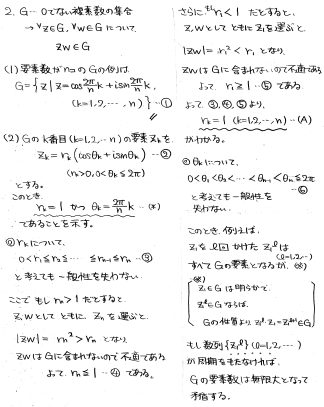 2. G… 0でない複素数の集合
→ ∀z∈G, ∀w∈G について
zw∈G
(1) 要素数がnコの Gの例は
G={z|z=cos 2π/n k + i sin 2π/n k,
(k=1,2,…,n)} …①
(2) Gの k番目 (k=1,2,…n) の要素 Zkを
Zk=rk(cosθk+isinθk) …②
(rk>0, 0<θk≦2π)
とする。
このとき
rk=1 かつ θk=2π/n k …(*)
であることを示す。
◎rkについて、
0<r1≦r2≦… ≦rn-1≦rn …③
と考えても一般性を失わない
ここでもし rn>1 だとすると、
z,wとしてともに Znを選ぶと、
|zw|= rn²>rn となり
zwはGに含まれないので不適である
よって、rn≦1 …④ である。
さらに、もし r1<1 だとすると、
z,wとしてともにZ1を選ぶと、
|zw|=r1²<r1 となり、
zwは Gに含まれないので不適である
よって r1≧1 …⑤ である
よって ③,④,⑤より、
rk=1 (k=1,2,…,n) …(A)
がわかる。
◎θkについて、
0<θ1<θ2<… <θn-1<θn≦2π
…⑥
と考えても一般性を
失わない
このとき、例えば、
Z1を l回かけた Z1^l は
(l=1,2,…)
すべて Gの要素となるが、(※)
(※)
Z1∈G は明らかで、
Z1^l∈G ならば、
Gの性質より Z1^l・Z1=Z1^{l+1}∈G
もし 数列{Z1^l} (l=1,2,…)
が周期をもたなければ、
Gの要素数は無限大となって
矛盾する。